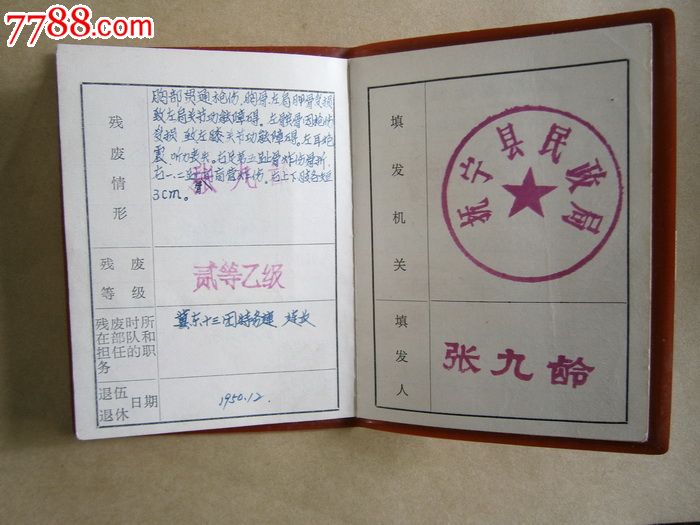 7788.com
残废情形
胸部贯通枪伤，胸骨、左肩胛骨受损
致左肩关节功能障碍。左髌骨因枪伤
受损 致左膝关节功能障碍。左耳炮
震，听力丧失。右足第五趾骨炸伤骨折，
右一、二趾
炸伤，右上下肢各短
3cm。
残废
等级
贰等乙级
残废时所
在部队和
担任的职
务
冀东十三团特务連 班长
退伍
退休
日期
1950.12.
填发机关
抚宁县民政局
填发人
张九龄